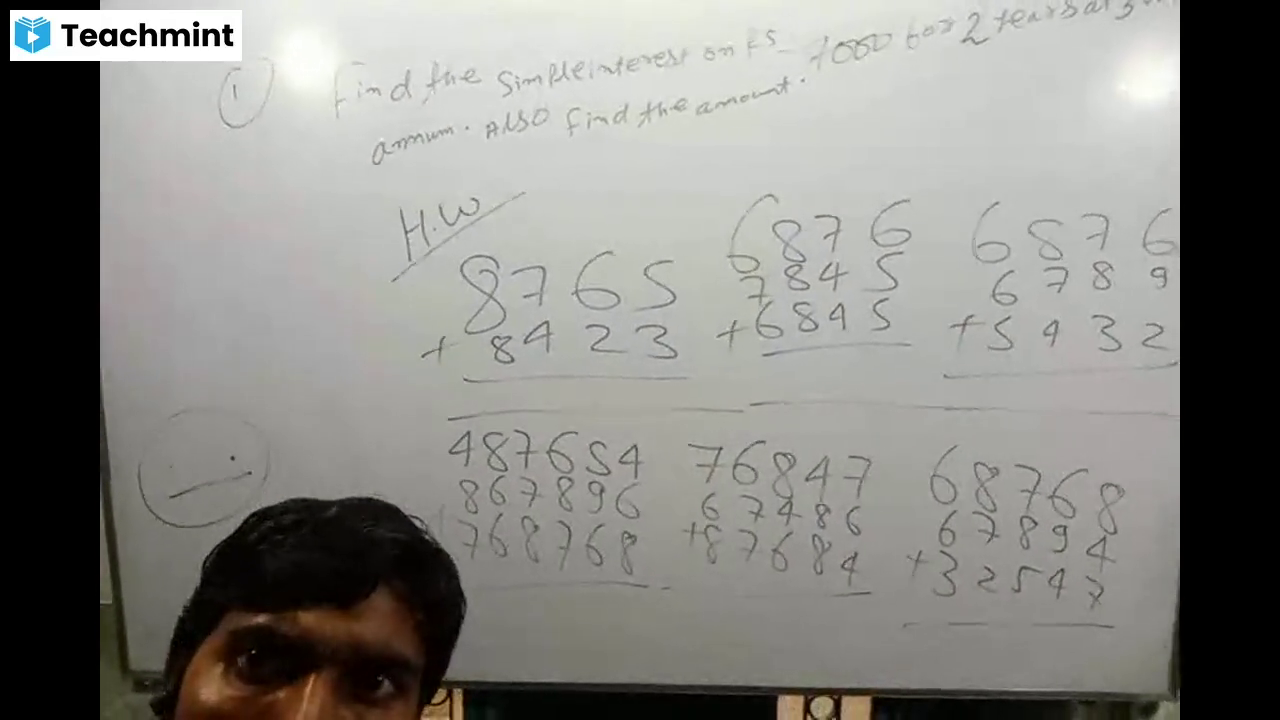 Teachmint
1 Find the Simple interest on RS 7000 for 2 Years at
annum. Also find the amount.
H.W
8765
+ 8423
6876
7845
+6845
6876
6789
+5432
487654
867896
768768
76847
67486
+87684
68768
67894
+32547